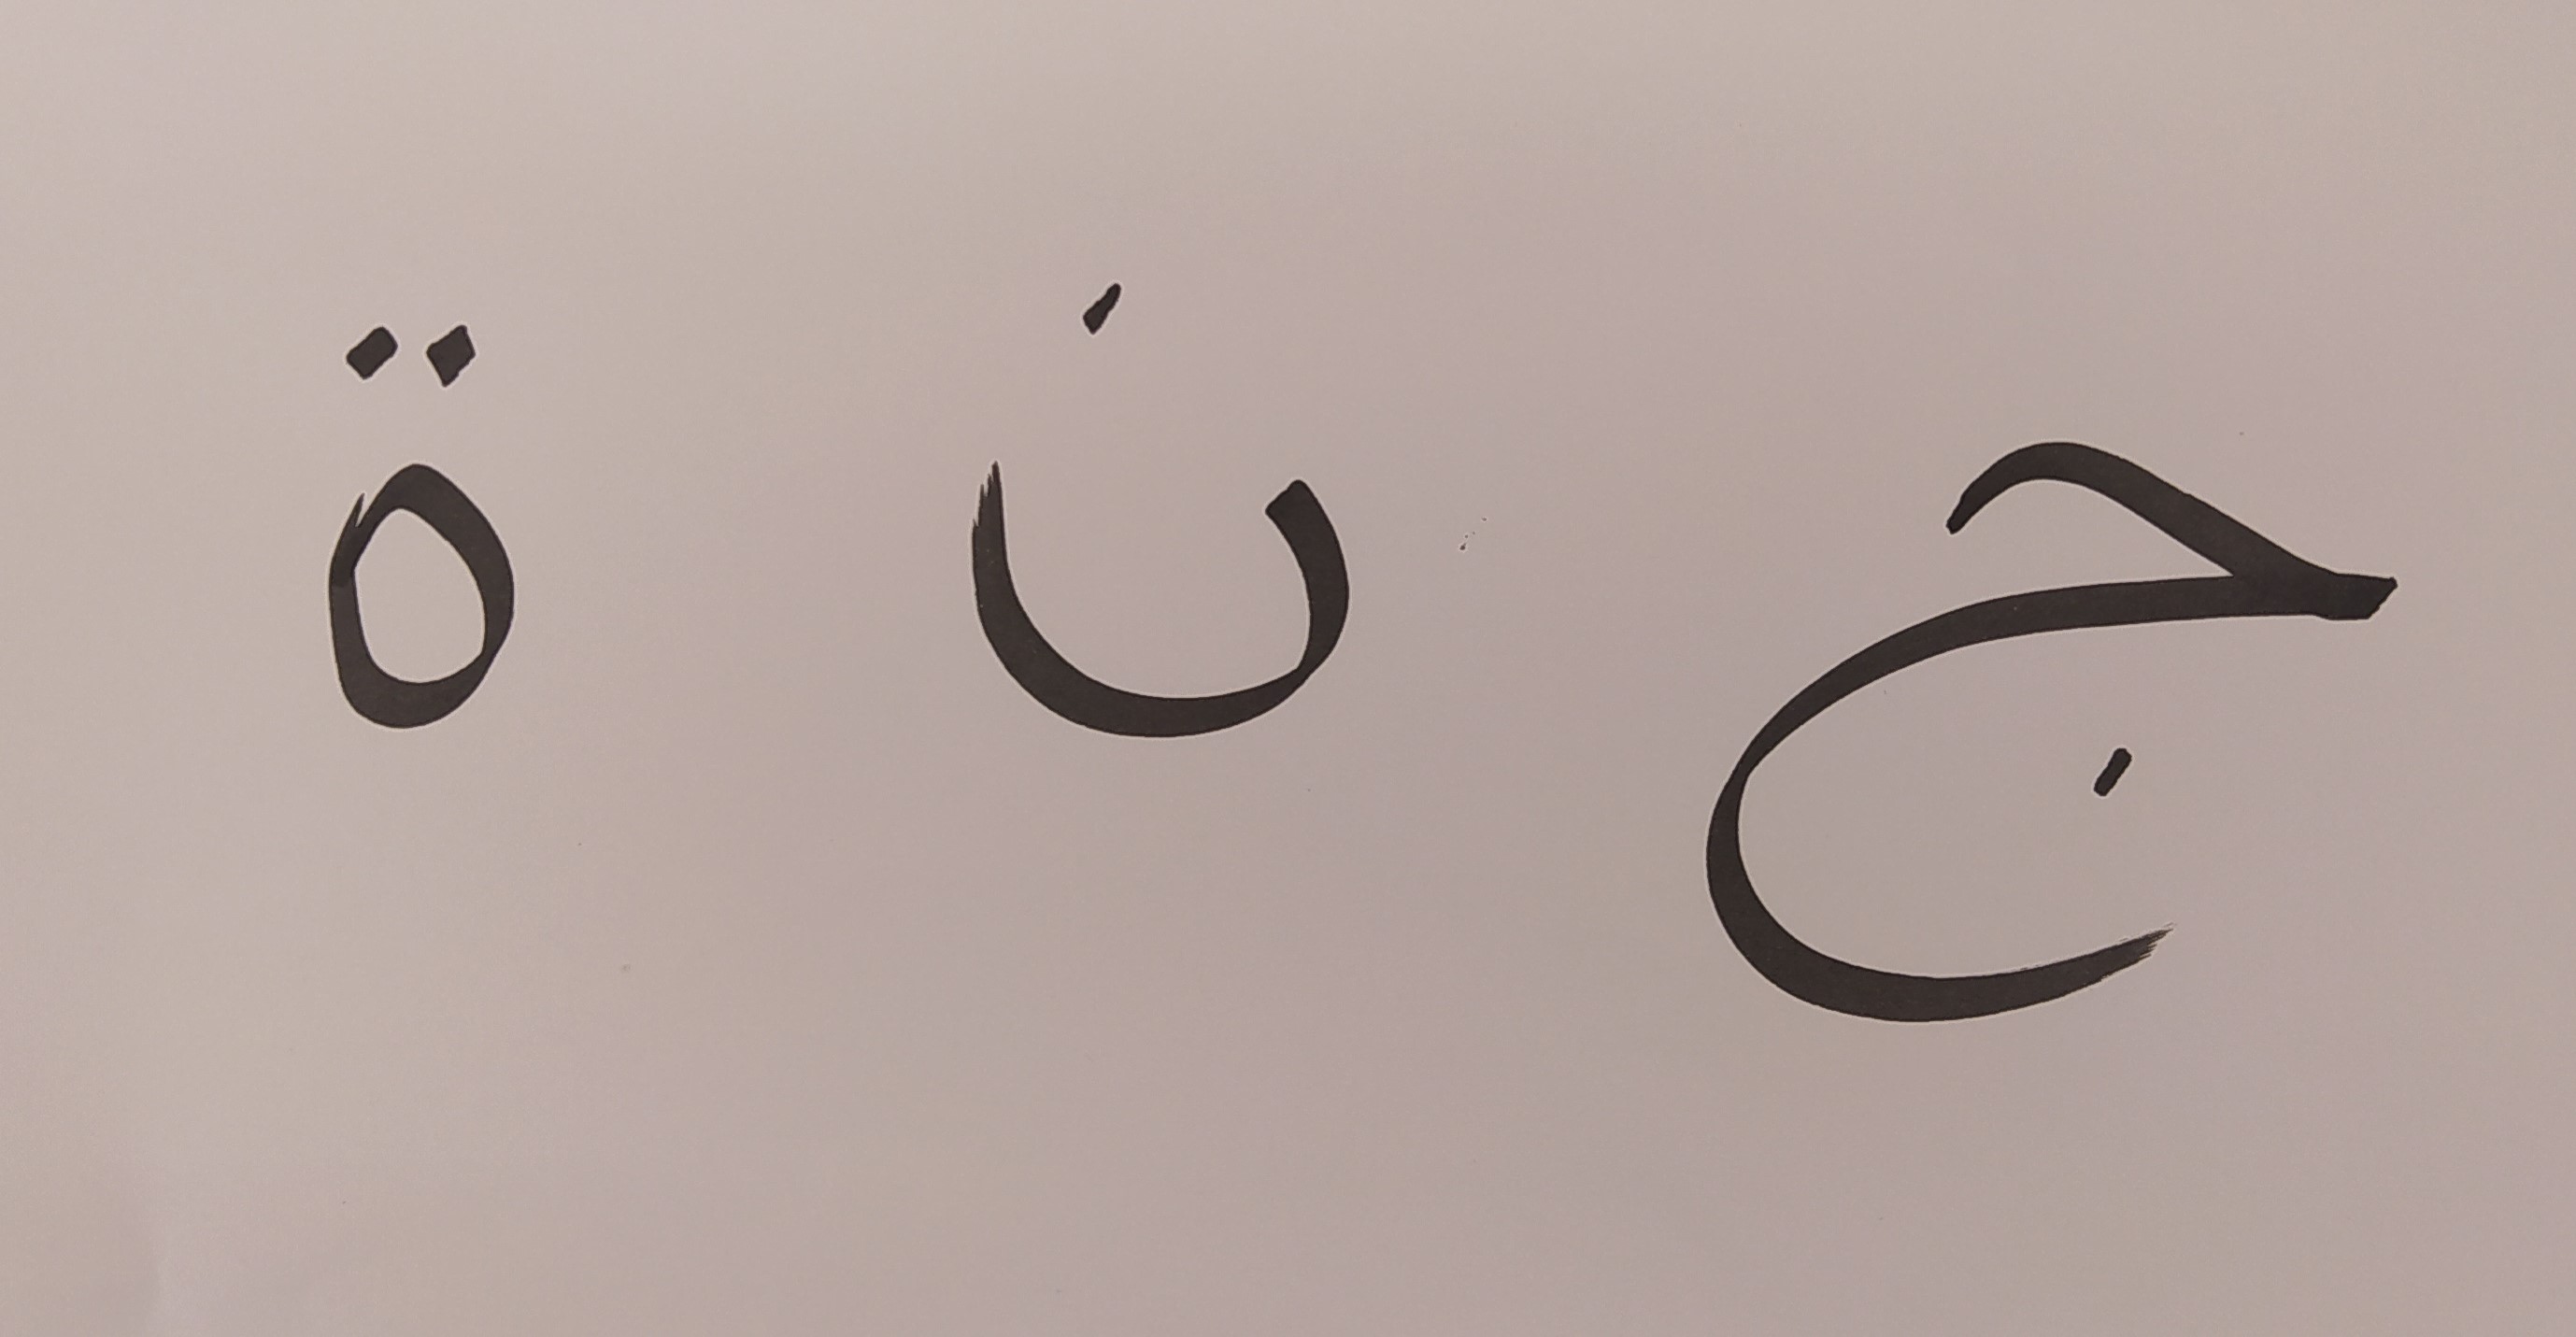 ج ن ة